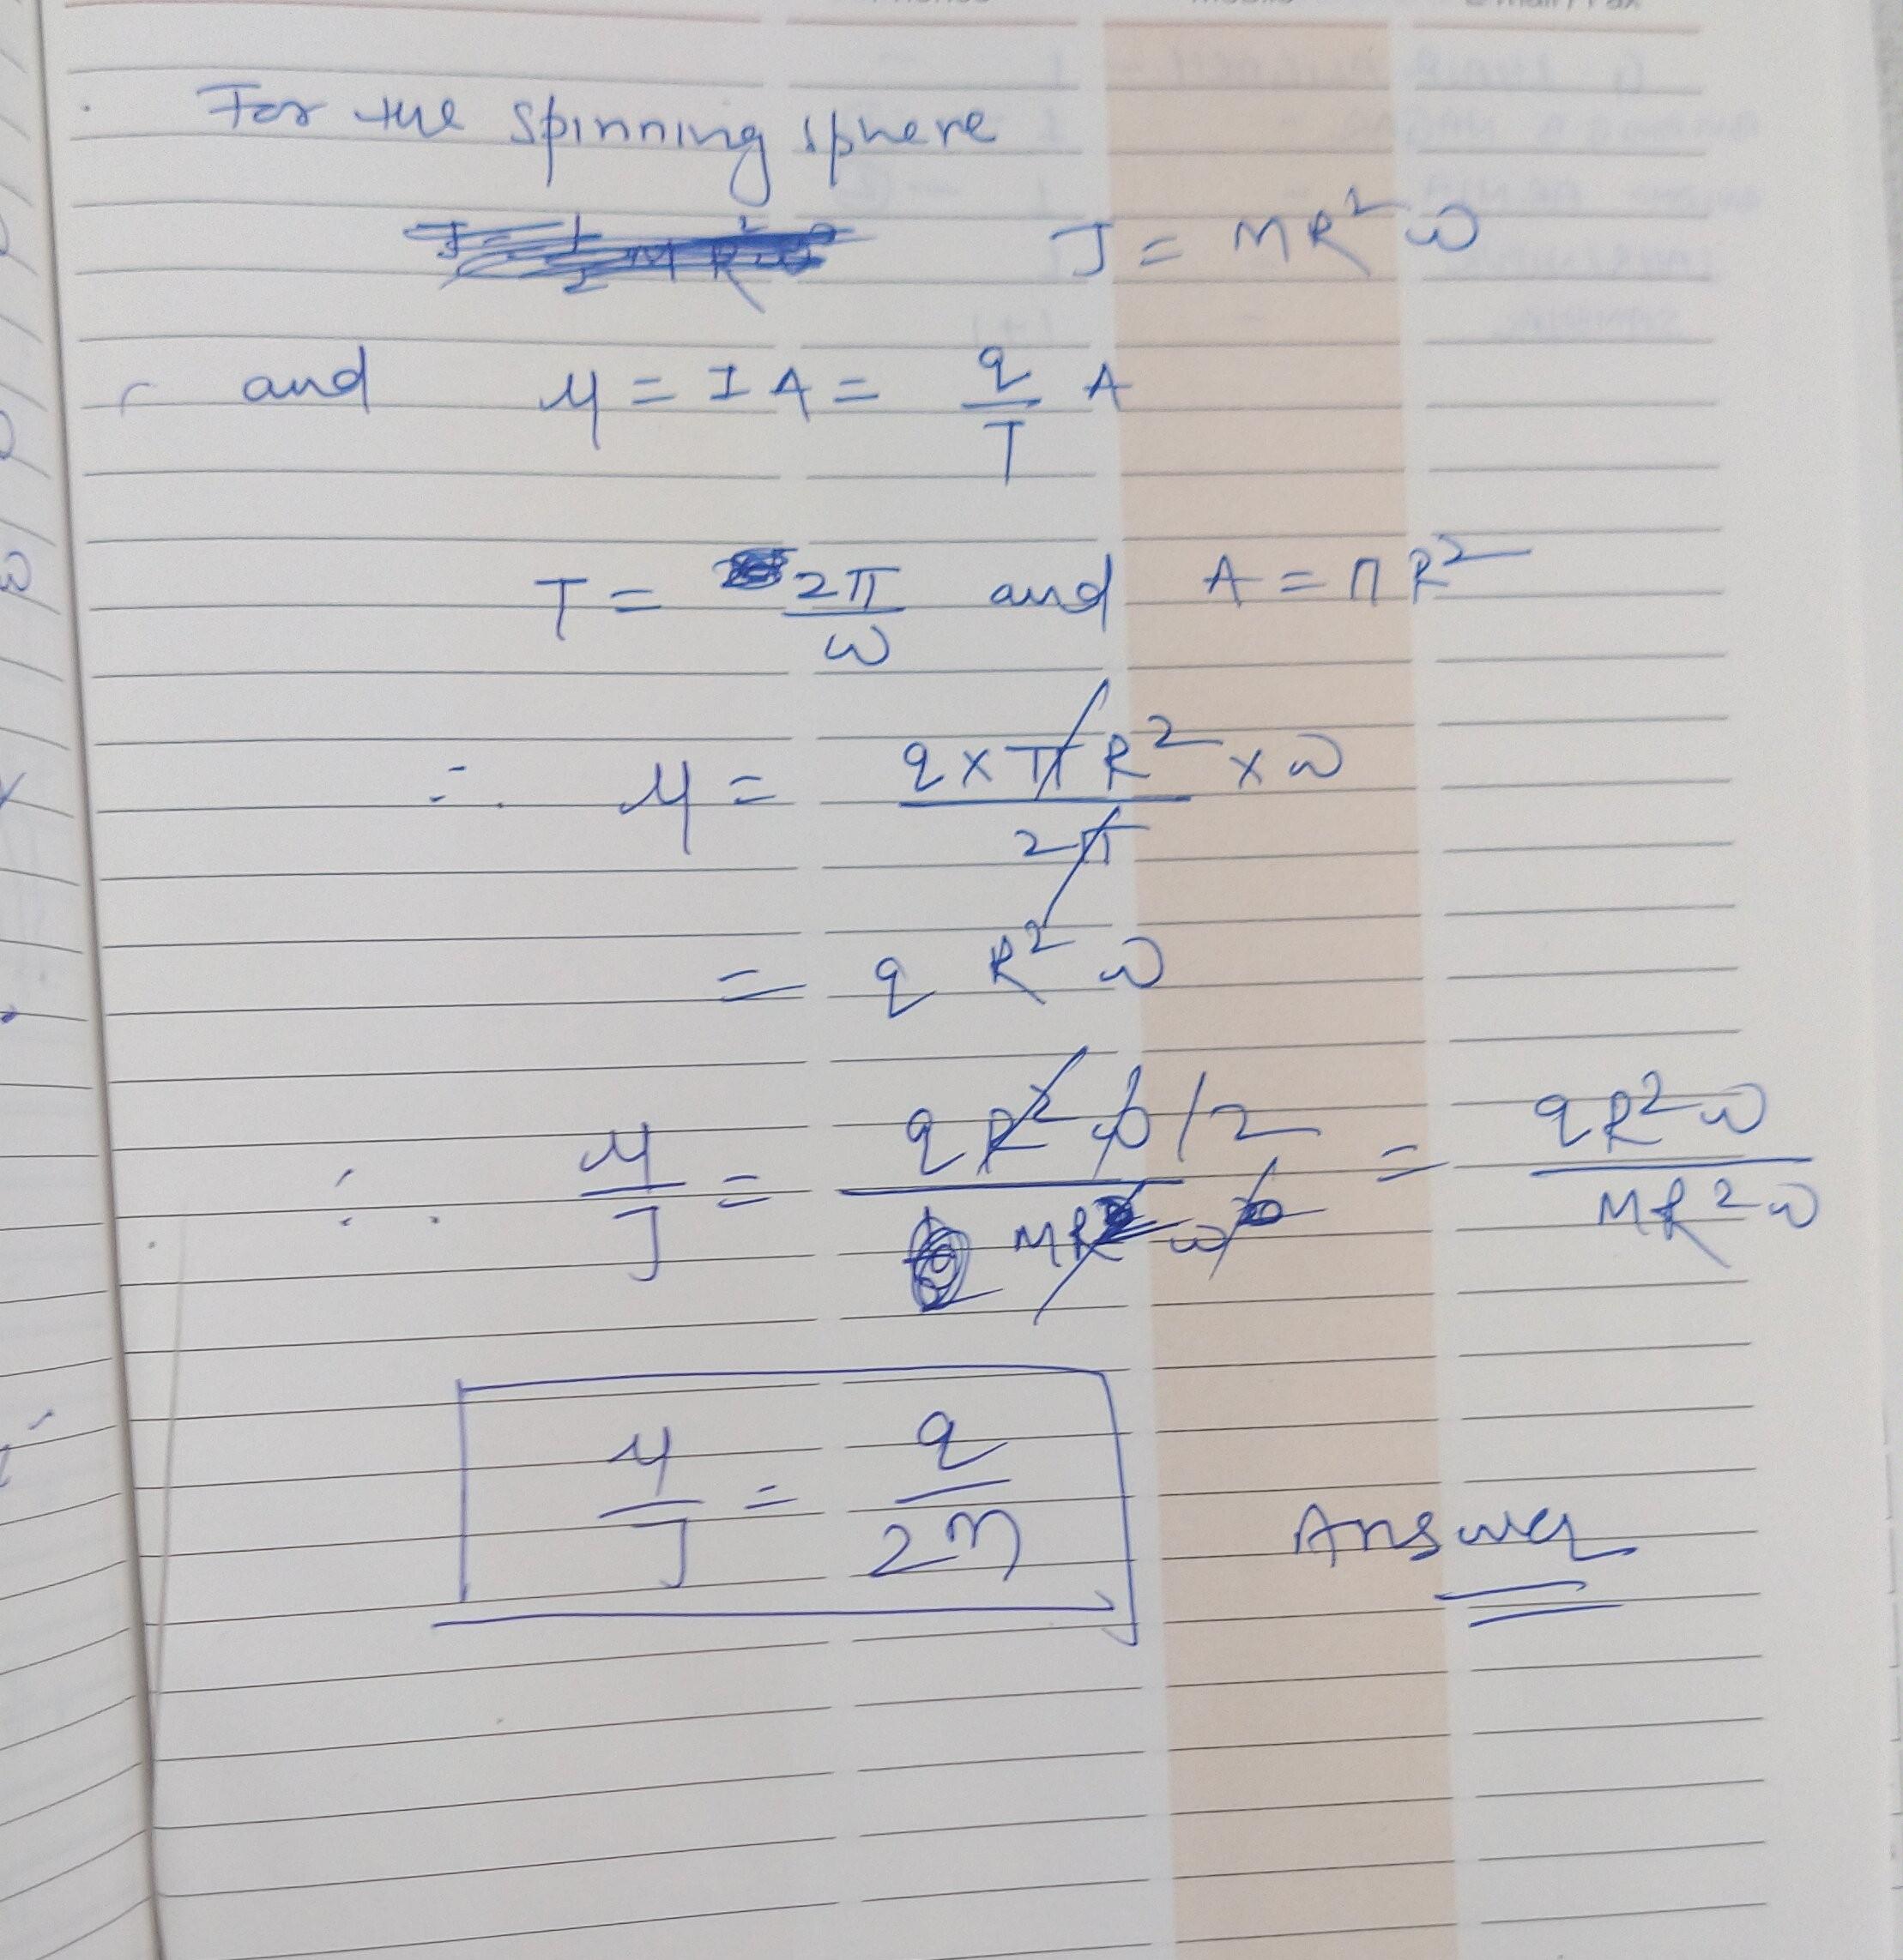 For the spinning sphere
J = MR² ω
and μ = IA = q/T A
T = 2π/ω and A = πR²
∴ μ = q × πR²/2π × ω
= q R² ω
∴ μ/J = qR²ω/2 / MR²ω = qR²ω / MR²ω
μ/J = q/2m Answer